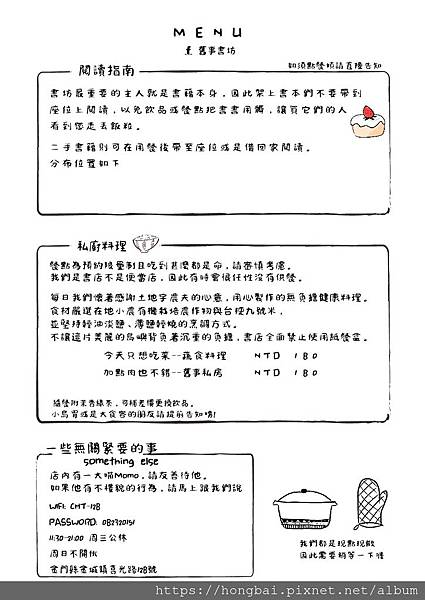 MENU
熏 舊事書坊
如須點餐煩請直接告知
閱讀指南
書坊最重要的主人就是書籍本身，因此架上書本們不要帶到
座位上閱讀，以免飲品或餐點把書書用髒，讓買它們的人
看到您走去飯粒。
二手書籍則可在用餐後帶至座位或是借回家閱讀。
分布位置如下
私廚料理
餐點為預約限量制且吃到甚麼都是命，請審慎考慮。
我們是書店不是便當店，因此有時會很任性沒有供餐。
每日我們懷著感謝土地予農夫的心意，用心製作的無負擔健康料理。
食材嚴選在地小農有機栽培農作物與台梗九號米，
並堅持輕油淡鹽、薄鹽輕燒的烹調方式。
不讓這片美麗的島嶼背負著沉重的負擔，書店全面禁止使用紙餐盒。
今天只想吃菜--蔬食料理 NTD 180
加點肉也不錯--舊事私房 NTD 180
隨餐附末香綠茶，可補差價更換飲品。
小鳥胃或是大食客的朋友請提前告知唷!
一些無關緊要的事
something else
店內有一犬喵Momo，請友善待他。
如果他有不禮貌的行為，請馬上跟我們說
WIFI: CHT-128
PASSWORD: 082320151
11:30-21:00 周三公休
周日不開伙
金門縣金城鎮喜光路128號
我們都是現點現做
因此需要稍等一下喔
https://hongbai.pixnet.net/album